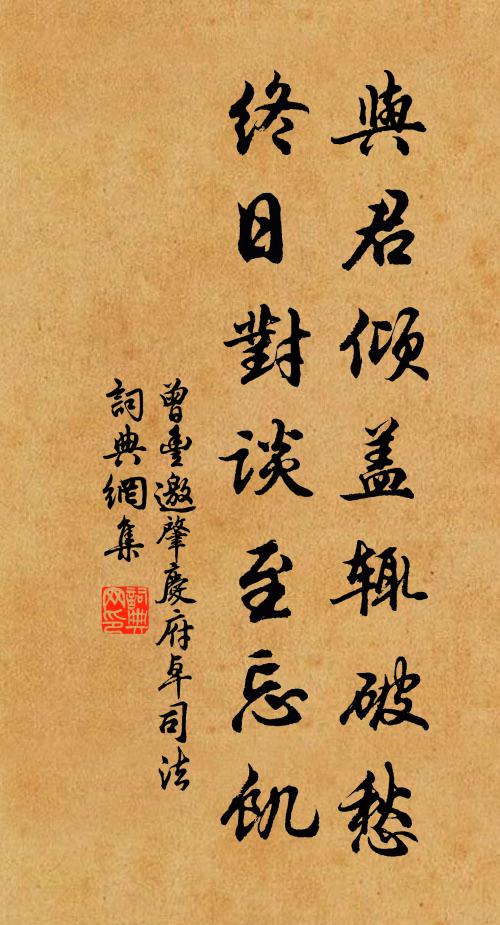 與君傾蓋輒破愁
終日對談至忘飢
曾豐邀肇慶府卓司法
詞典網集
詞典網印